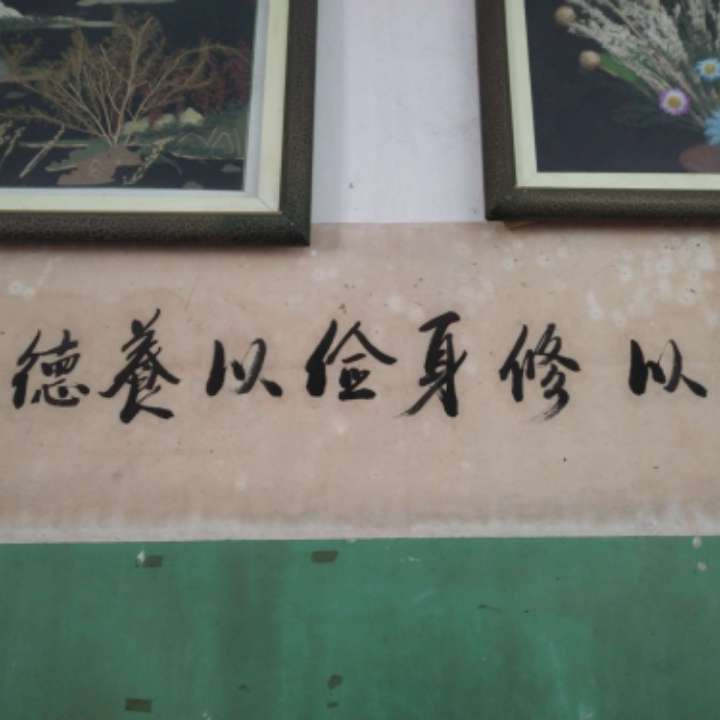 以修身儉以養德